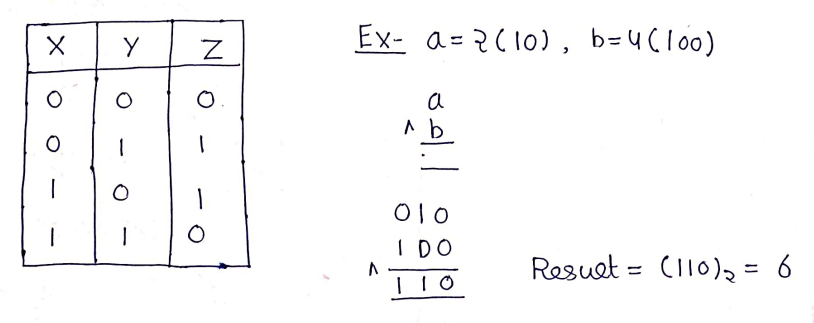 X Y Z
0 0 0
0 1 1
1 0 1
1 1 0
Ex- a=2(10), b=4(100)
a
^ b
010
100
^
110
Result = (110)₂ = 6